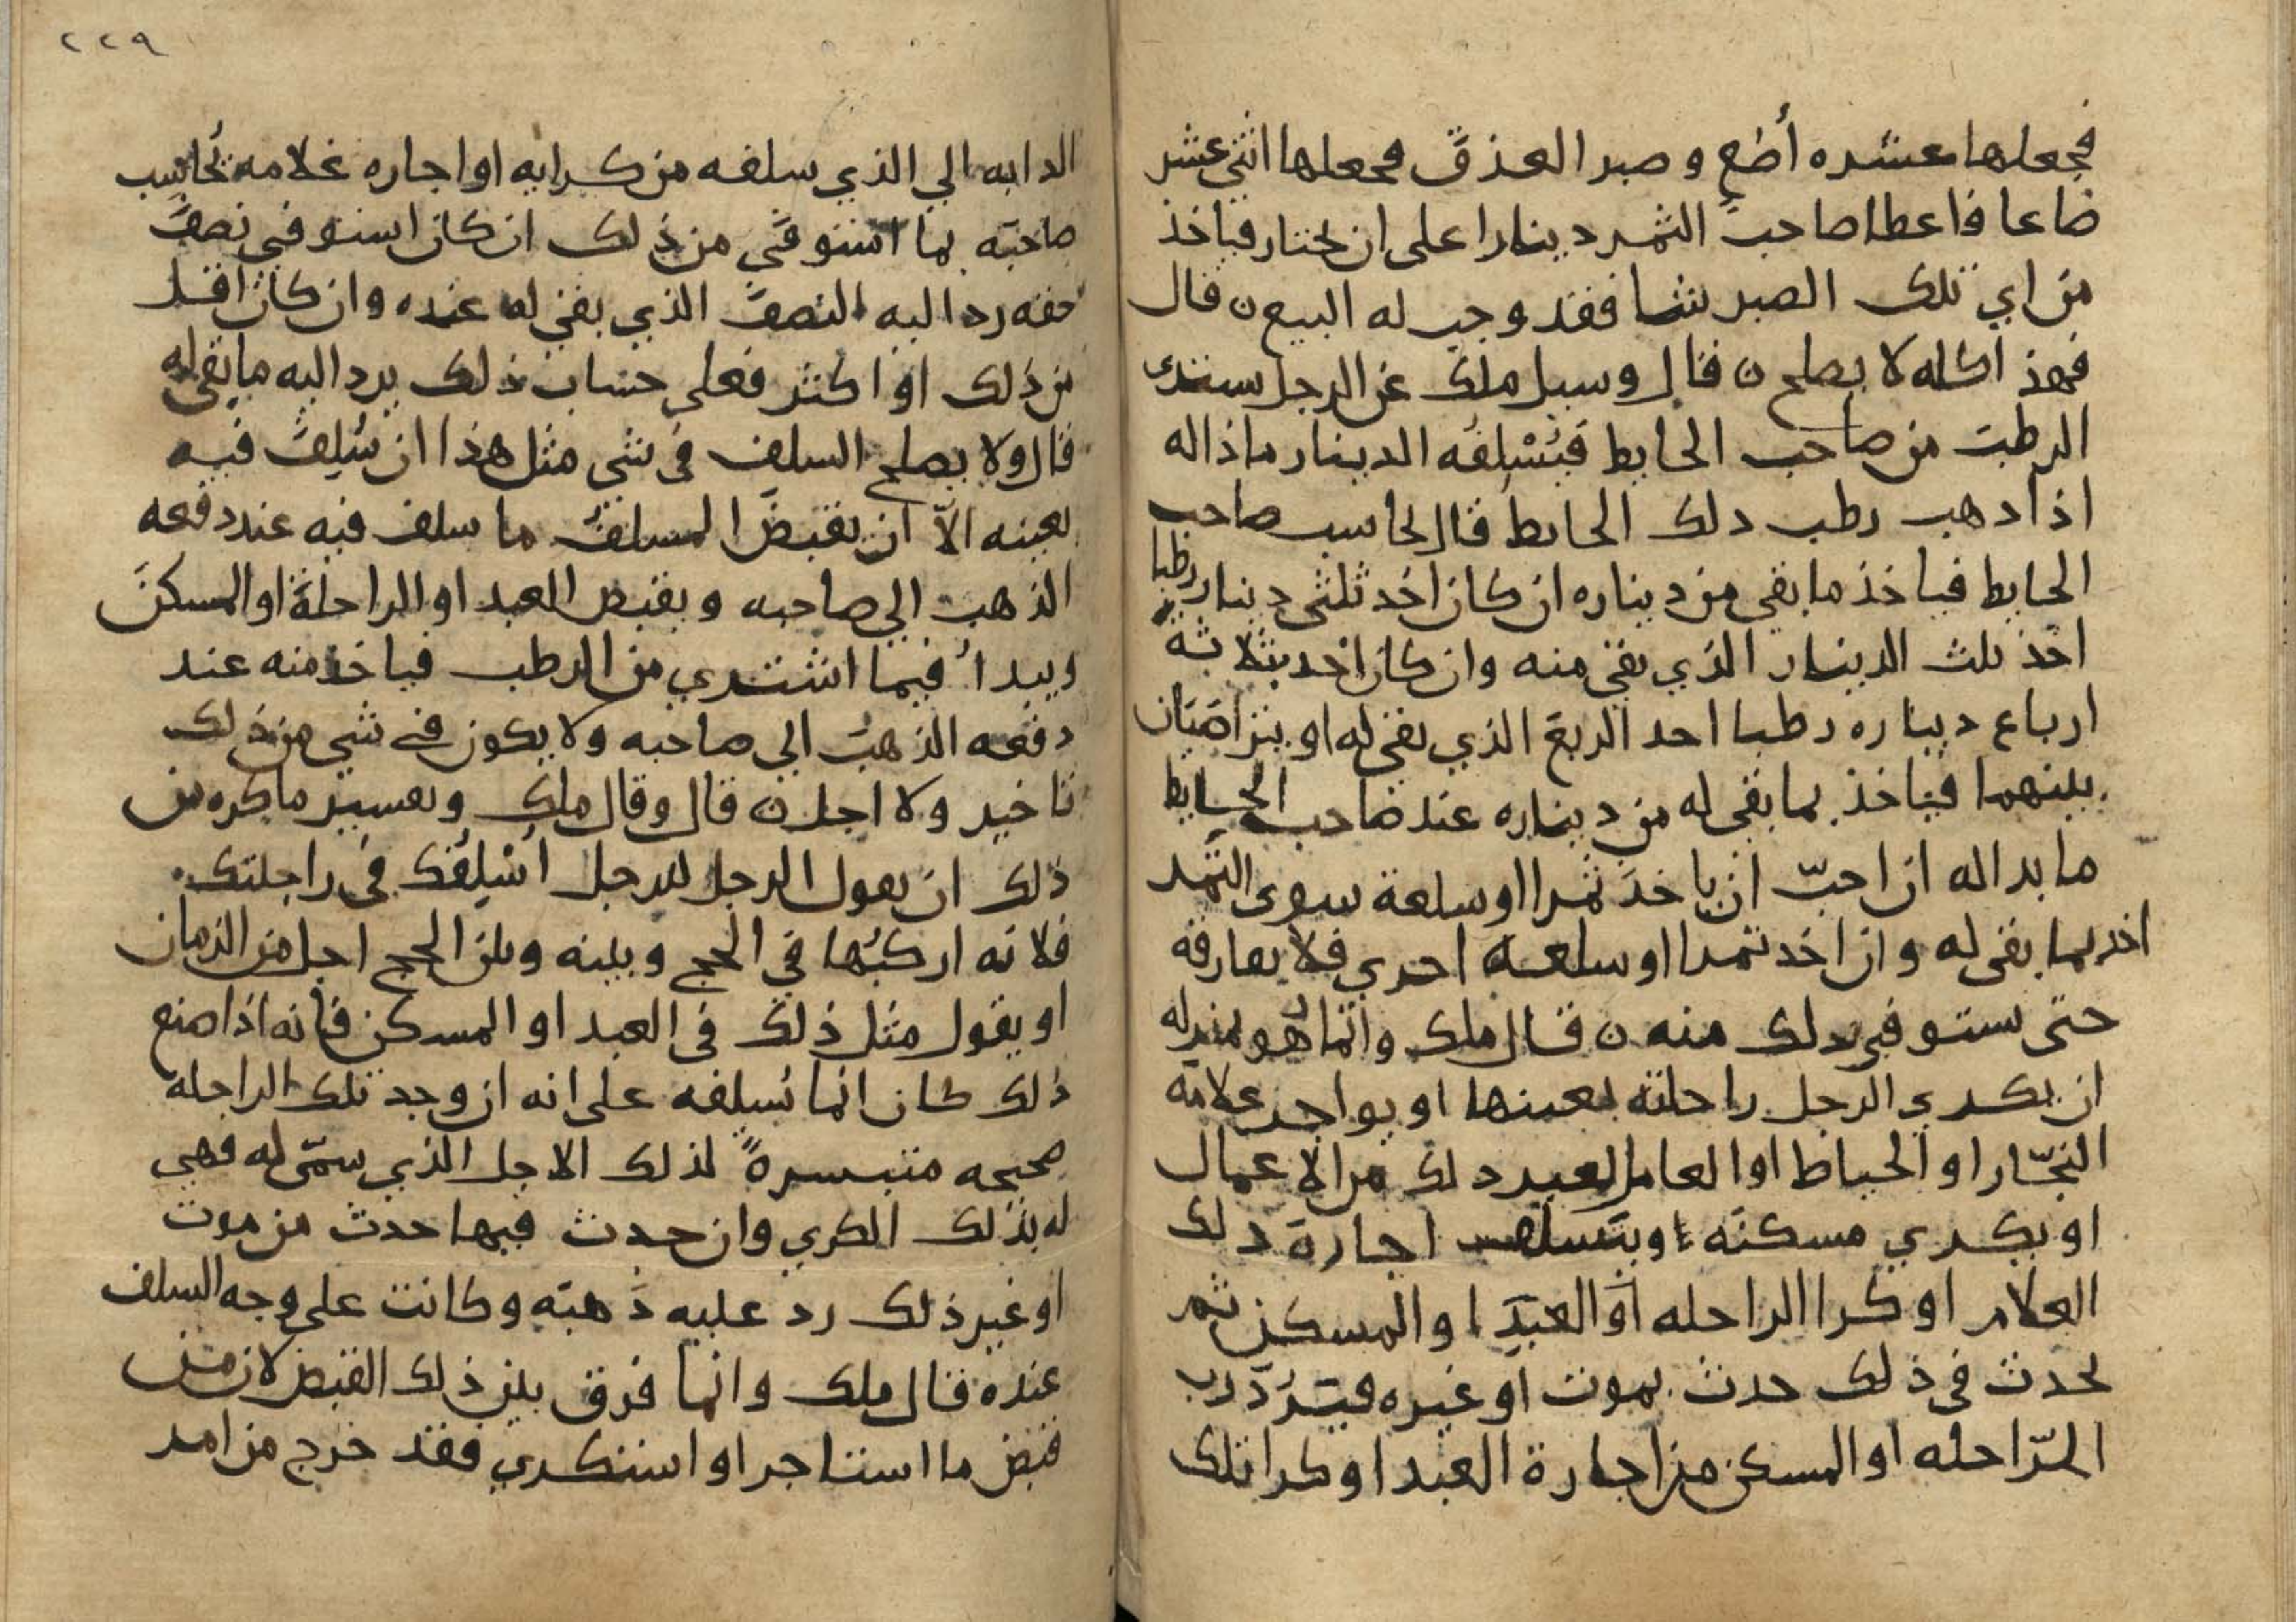 فجعلها عشره أصع وصبر العذق فجعلها اثني عشر
صاعا فاعطا صاحب الثمر دينارا على ان يختار فياخذ
من اي تلك الصبر شا فقد وجب له البيع ن قال
فهذا كله لا يصلح ن قال وسيل ملك عن الرجل يشتري
الرطب من صاحب الحايط فيُسْلِفه الدينار ماذا له
اذا دهب رطب دلك الحايط قال يحاسب صاحب
الحايط فياخذ ما بقي من ديناره ان كان اخذ ثلثي دينار رطبا
اخذ ثلث الدينار الذي بقي منه وان كان اخد بثلاثة
ارباع ديناره رطبا اخد الربع الذي بقي له او يتراضيان
بينهما فياخذ بما بقي له من ديناره عند صاحب الحايط
ما بدا له ان احبّ ان ياخذ تمرا او سلعة سوى التمر
اخد بما بقي له وان اخد تمرا او سلعه اخرى فلا يفارقه
حتى يستوفي دلك منه ن قال ملك وانما هو بمنزله
ان يكري الرجل راحلته بعينها او يواجر غلامه
النجّار او الخياط او العامل لغير دلك من الاعمال
او يكري مسكنه او يتسلف اجارة دلك
الغلام او كرا الراحله او العبد او المسكن ثم
يحدث في ذلك حدث بموت او غيره فيَرُدّ رب
الرّاحله او المسكن من اجارة العبد او كرا تلك
٢٢٩
الدابه الي الذي سلفه من كرايه او اجاره غلامه يُحاسِب
صاحبَه بما استوفي من ذلك ان كان استوفي نصف
حقه رد اليه النصف الذي بقي له عنده وان كان اقل
من ذلك او اكثر فعلى حساب ذلك يرد اليه ما بقي له
قال ولا يصلح السلف في شي مثل هذا ان يُسْلِف فيه
بعينه الاّ ان يقبض المسلف ما سلف فيه عند دفعه
الذهب الي صاحبه ويقبض العبد او الراحلة او المسكن
ويبدأ فيما اشترى من الرطب فياخذ منه عند
دفعه الذهب الي صاحبه ولا يكون في شي من ذلك
تاخير ولا اجل ن قال وقال ملك وتفسير ما كره من
ذلك ان يقول الرجل للرجل اُسْلِفُك في راحلتك
فلانه اركبُها في الحج وبينه وبين الحج اجل من الزمان
او يقول مثل ذلك في العبد او المسكن فانه اذا صنع
ذلك كان انما يُسلفه على انه ان وجد تلك الراحلة
صحيحه متيسرةً لذلك الاجل الذي سمّى له فهي
له بذلك الكري وان حدث فيها حدث من موت
او غير ذلك رد عليه ذهبه وكانت على وجه السلف
عنده قال ملك وانما فرق بين ذلك القبض لان من
قبض ما استاجر او استكرى فقد خرج من امر